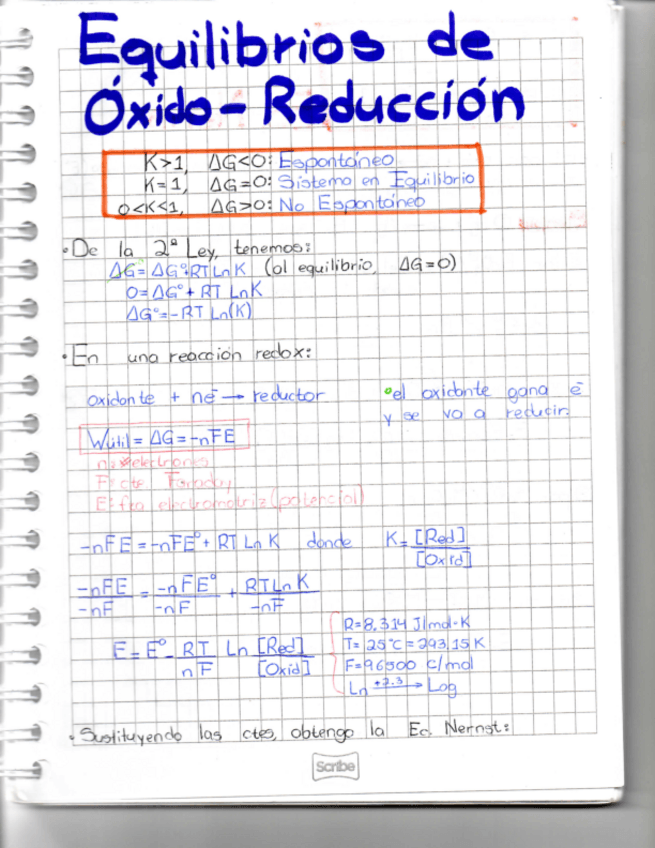 Equilibrios de
Óxido-Reducción
K>1, ΔG<0: Espontáneo
K=1, ΔG=0: Sistema en Equilibrio
0<K<1, ΔG>0: No Espontáneo
•De la 2ª Ley, tenemos:
ΔG=ΔG°+RTLnK (al equilibrio, ΔG=0)
0=ΔG°+RT LnK
ΔG°=-RT Ln(K)
•En una reacción redox:
oxidante + nē → reductor
•el oxidante gana ē
y se va a reducir.
Wútil=ΔG=-nFE
n: #electrones
F: cte Faraday
E: fza electromotriz (potencial)
-nFE=-nFE°+RT Ln K donde K=[Red]/[Oxid]
-nFE/-nF = -nFE°/-nF + RTLnK/-nF
E=E°-RT/nF Ln [Red]/[Oxid]
R=8.314 J/mol·K
T=25°C=293.15K
F=96500 C/mol
Ln +2.3→ Log
•Sustituyendo las ctes, obtengo la Ec. Nernst:
Scribe